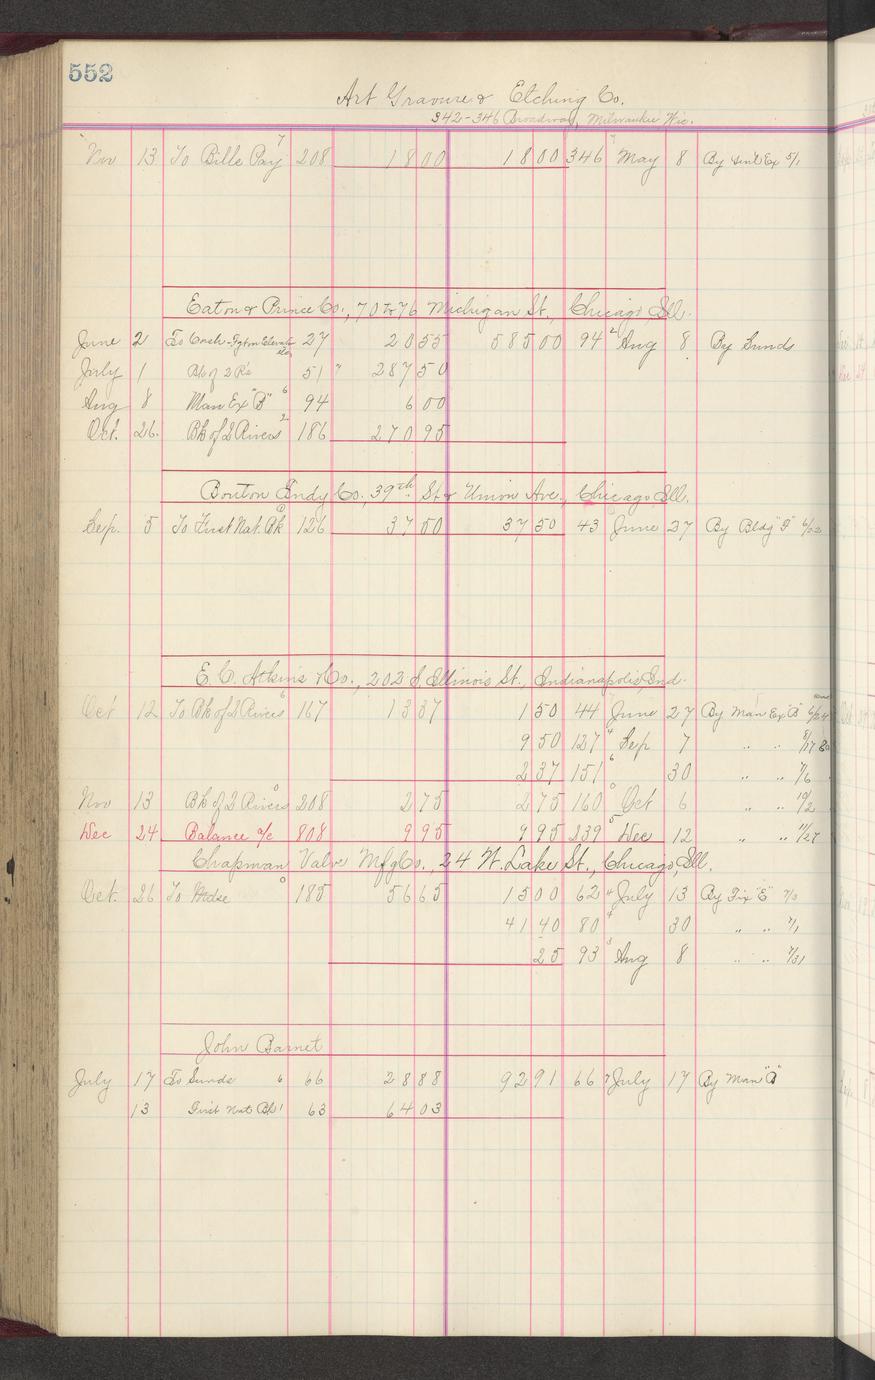 552
Art Gravure & Etching Co.
342-346 Broadway, Milwaukee Wis.
Nov 13 To Bills Pay 7 208 18 00 18 00 346 May 8 By Genl Ex 5/1
Eaton & Prince Co., 70 to 76 Michigan St., Chicago, Ill.
June 2 To Cash - Fgt on Elevator 27 20 55 585 00 94 2 Aug 8 By Sunds
July 1 Bk of 2 Rs 51 287 50
Aug 8 Man Ex "B" 6 94 6 00
Oct. 26. Bk of 2 Rivers 2 186 270 95
Bouton Fndy Co., 39th St & Union Ave., Chicago Ill.
Sep. 5 To First Nat. Bk 126 37 50 37 50 43 June 27 By Bldg
E. C. Atkins & Co., 202 S. Illinois St., Indianapolis, Ind.
Oct 12 To Bk of 2 Rivers 6 167 13 37 1 50 44 June 27 By Man Ex "B"
9 50 127 4 Sep 7 " "
2 37 151 6 30 " " 7/6
Nov 13 Bk of 2 Rivers 0 208 2 75 2 75 160 0 Oct 6 " " 10/2
Dec 24 Balance a/c 808 9 95 9 95 239 5 Dec 12 " " 11/27
Chapman Valve Mfg Co., 24 W. Lake St., Chicago, Ill.
Oct. 26 To Mdse 0 185 56 65 15 00 62 4 July 13 By Fix "E"
41 40 80 4 30 " " 7/1
25 93 3 Aug 8 " " 7/31
John Barnet
July 17 To Sunds 6 66 28 88 92 91 66 7 July 17 By Man
13 First Nat Bk 1 63 64 03